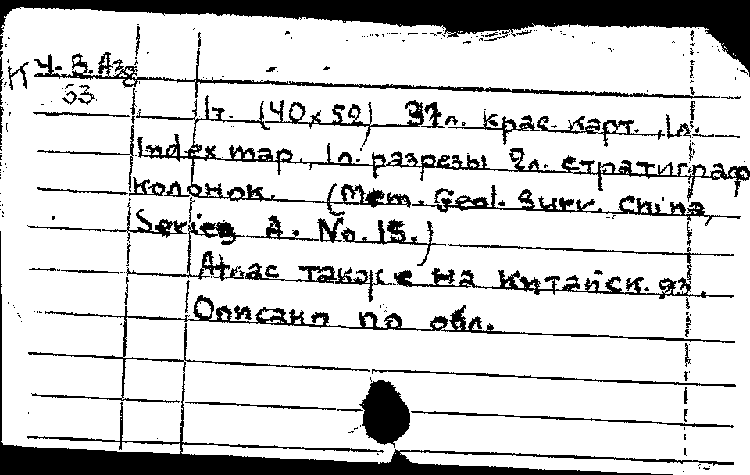 К Ч.В.Аз8
53
1т. (40x52) 37л. крас. карт., 1л.
Index map., 1л. разрезы 2л. стратиграф
колонок. (Mem. Geol. Surv. China,
Series A. No. 15.)
Атлас также на Китайск. яз.
Описано по обл.